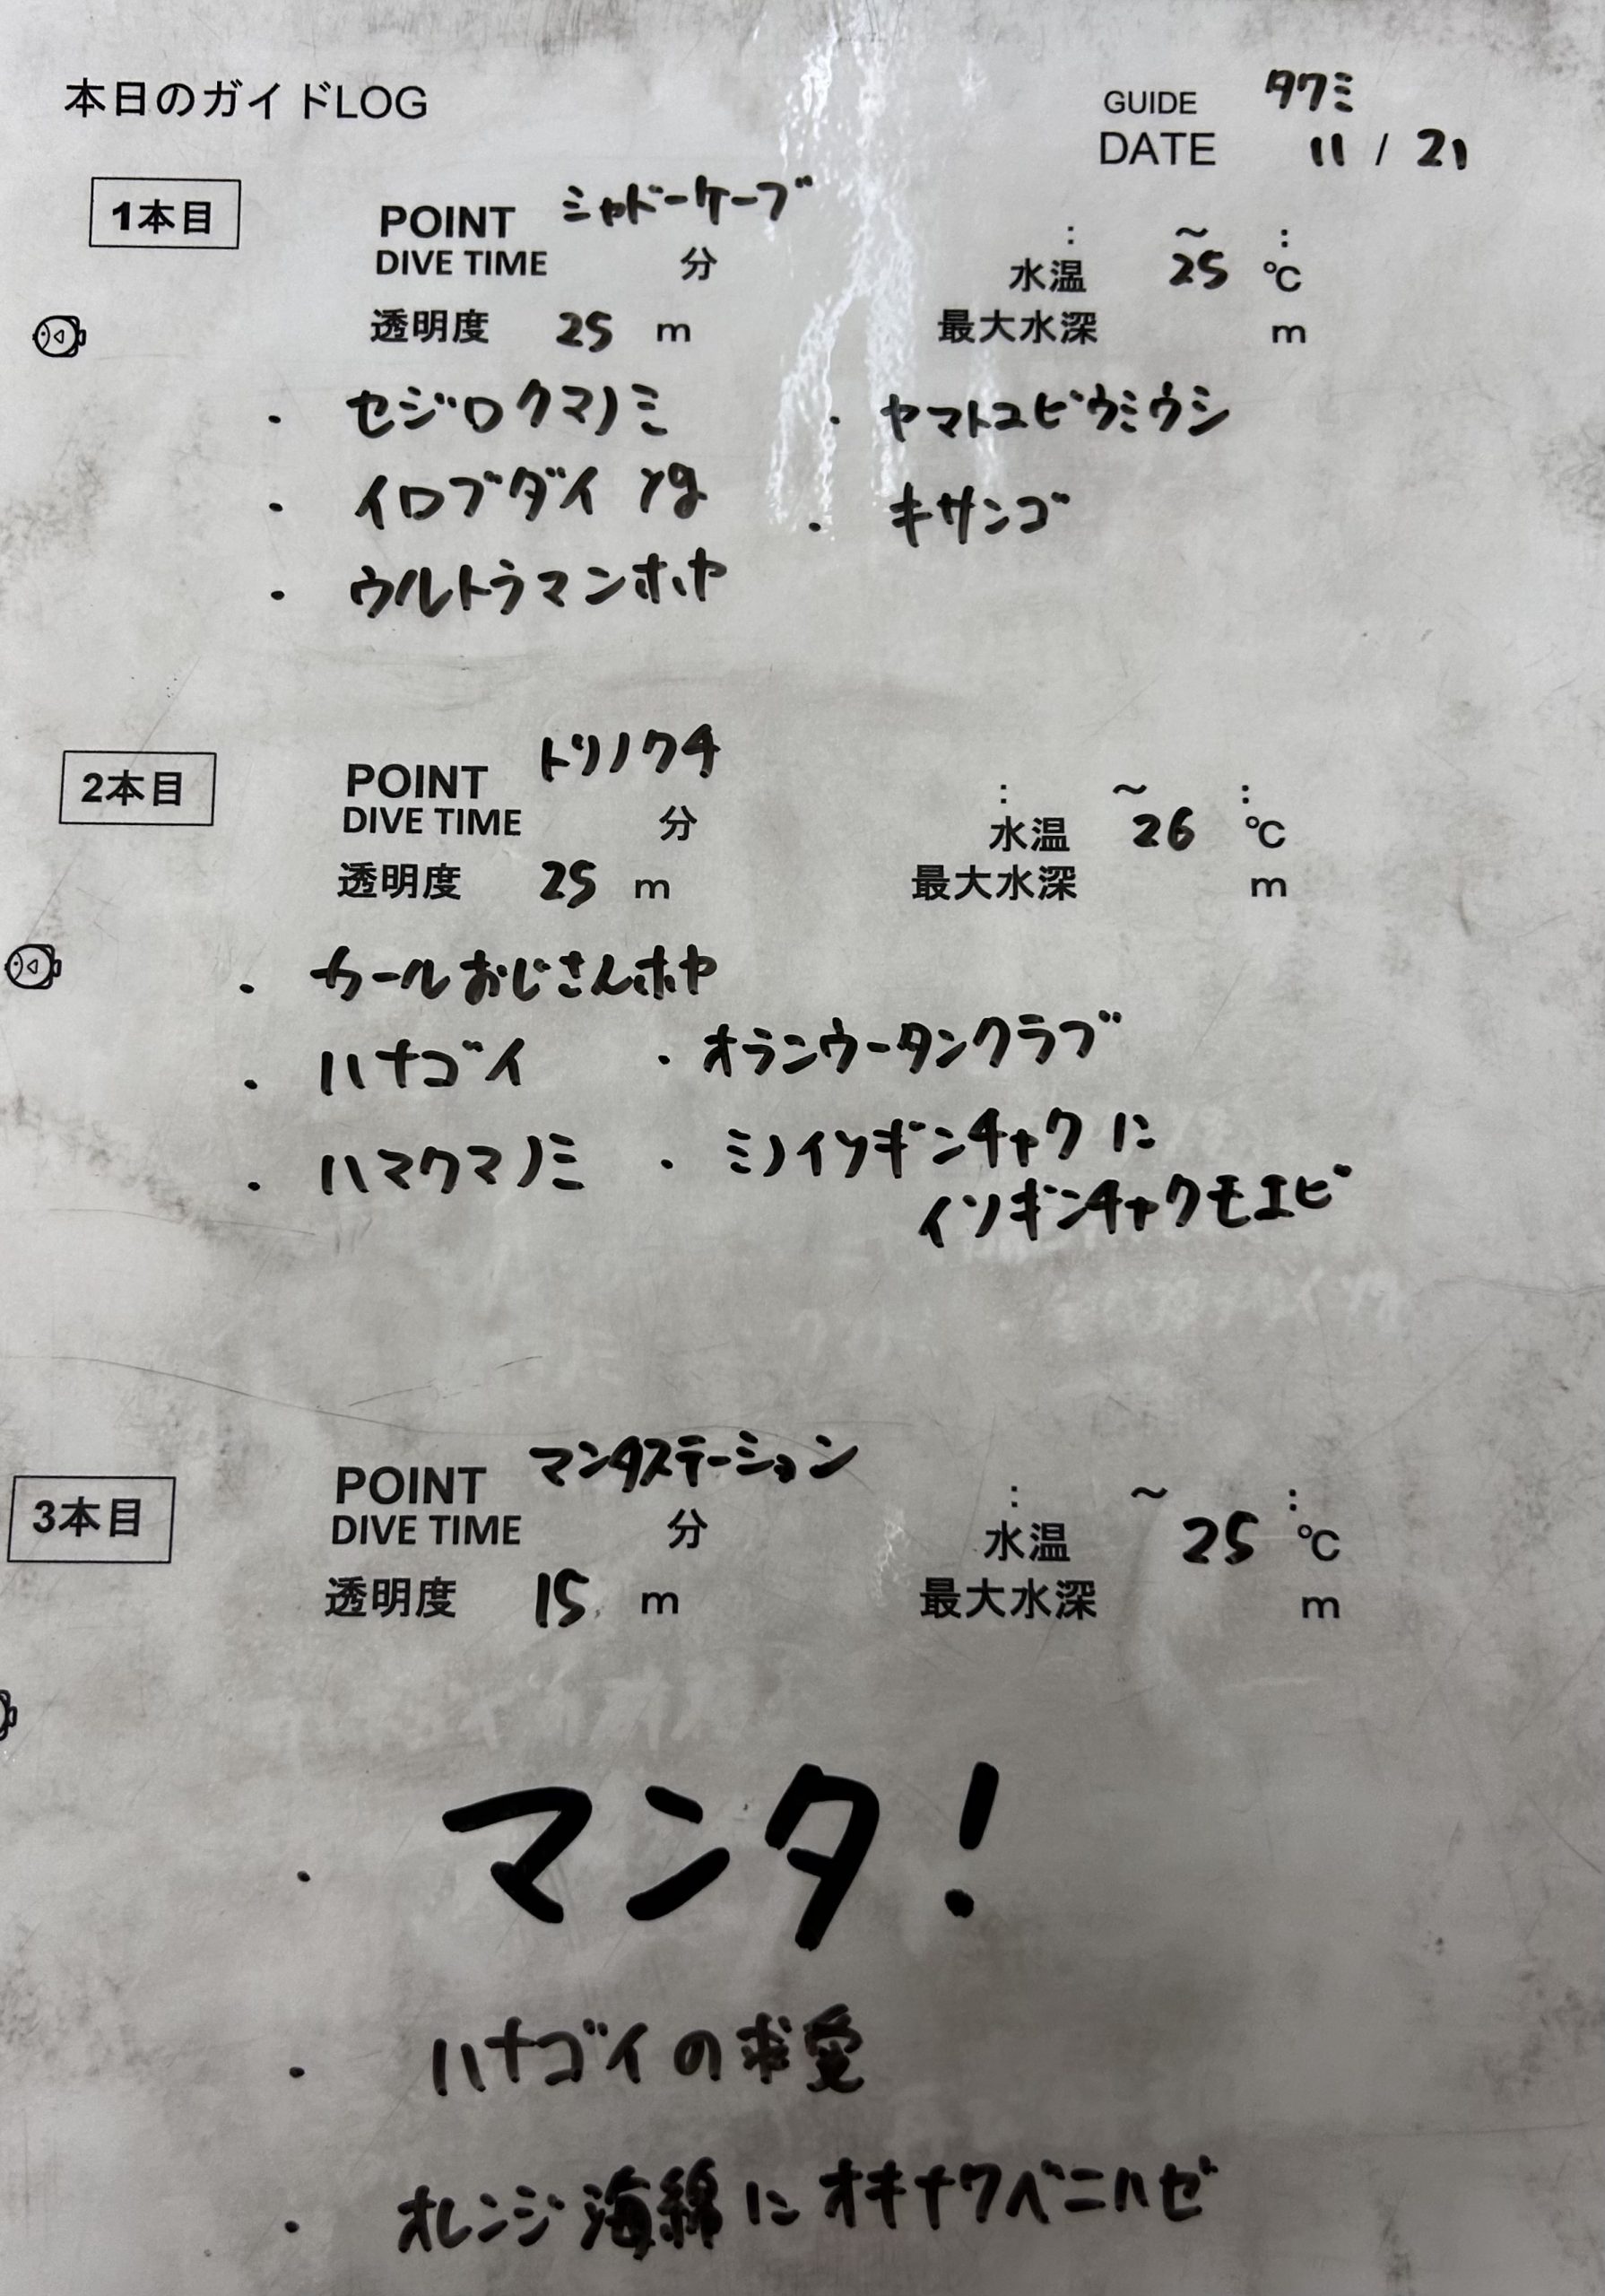 本日のガイドLOG
GUIDE タクミ
DATE 11 / 21
1本目
POINT シャドーケーブ
: ～ :
DIVE TIME 分
水温 25 ℃
透明度 25 m
最大水深 m
・ セジロクマノミ
・ ヤマトユビウミウシ
・ イロブダイ yg
・ キサンゴ
・ ウルトラマンホヤ
2本目
POINT トリノクチ
: ～ :
DIVE TIME 分
水温 26 ℃
透明度 25 m
最大水深 m
・ カールおじさんホヤ
・ ハナゴイ
・ オランウータンクラブ
・ ハマクマノミ
・ ミノイソギンチャクに
イソギンチャクモエビ
3本目
POINT マンタステーション
: ～ :
DIVE TIME 分
水温 25 ℃
透明度 15 m
最大水深 m
・ マンタ！
・ ハナゴイの求愛
・ オレンジ海綿にオキナワベニハゼ